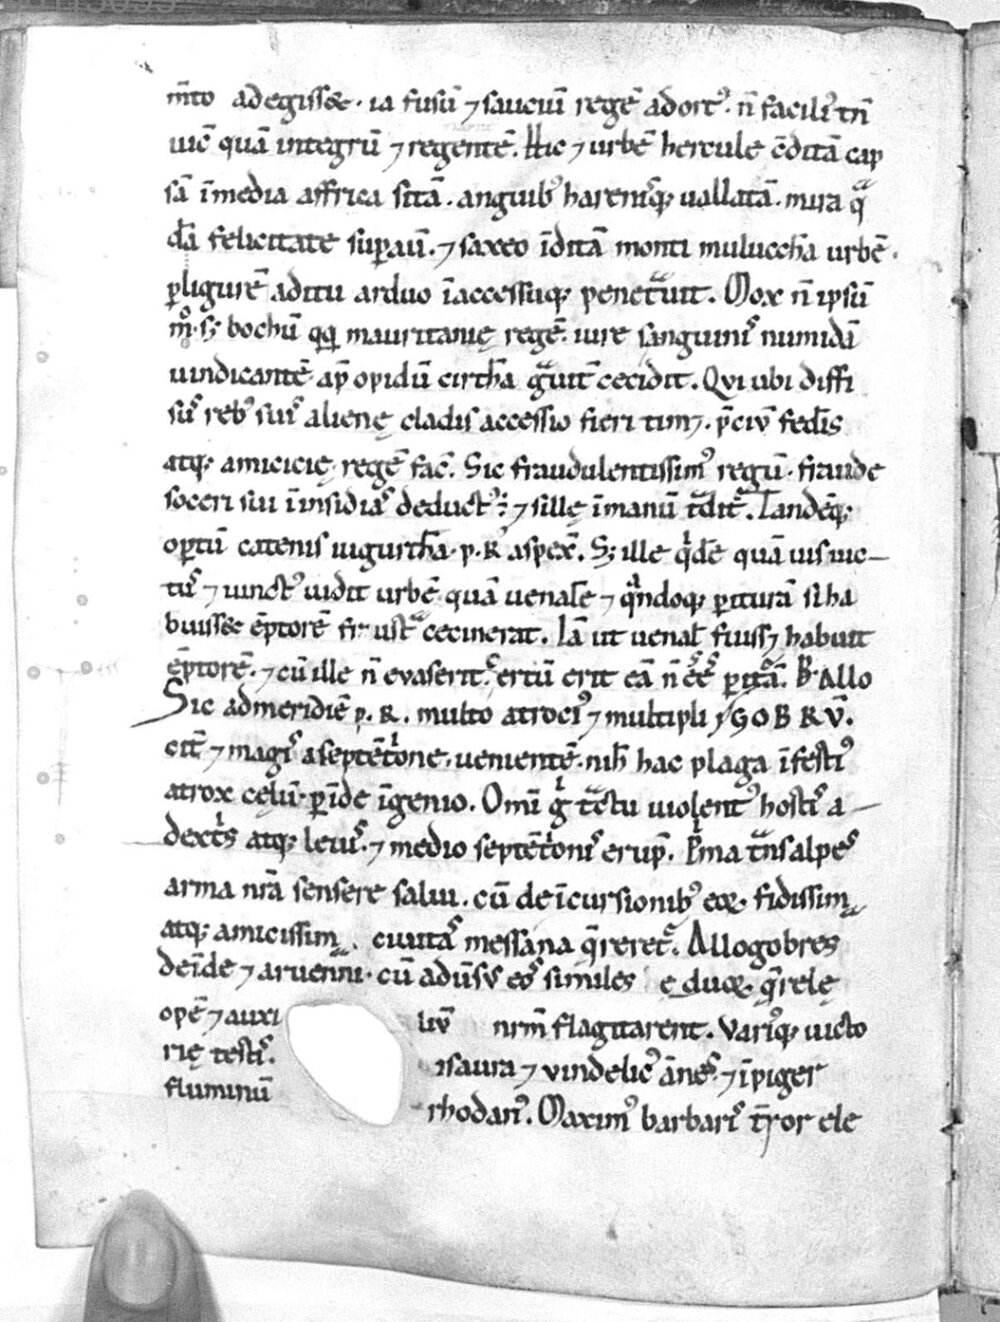 m̄to adegisset. ia fusū ⁊ sauciū regē adort᷒. n̄ facili᷒ tn̄
uic̄ quā integrū ⁊ regentē. Hic ⁊ urbē hercule c̄ditā cap
sā ī media affrica sitā. anguib᷒ harenisq; uallatā. mira q
dā felicitate supauī. ⁊ saxeo īditā monti muluccħa urbē.
p ligurē aditu arduo īaccessuq; penetuit. Mox n̄ ipsū
m̊. s; bochū qq; mauritanię regē. iure sanguinis numidā
uindicantē. ap̄ opidū cirtħā guit̄ cecidit. Qui ubi diffi
sus reb᷒ suis alienę cladis accessio fieri tim; p̄civ fedis
atq; amicicię. regē fac̄. Sic fraudulentissim᷒ regū. fraude
soceri sui ī insidias deduct᷒ ÷ ⁊ sillę ī manū tdit᷒. Tandēq;
optū catenis uigurtħā. p. R aspex̄. S; ille qdē quā uis uic
tus ⁊ uinct᷒ uidit urbē quā uenalē ⁊ qndoq; piturā si ha
buisset ēptorē frustͣ cecinerat. Iā ut uenal fuiss; habuit
ēptorē. ⁊ cū ille n̄ evaserit. certū erit eā n̄ eē pitā. B. Allo
Sic ad meridiē p. R. multo atroci᷒ ⁊ multipli GOBRV̄.
cit̄ ⁊ magis a septētone. uenientē. nih hac plaga īfesti᷒
atrox cęlū. pīde īgenio. Omī g tectu uiolent᷒ hostis a
dextis atq; leuis. ⁊ medio septētonis erup̄. Pma tnsalpes
arma nr̄a sensere salui. cū de īcursionib᷒ eoꝝ. fidissim
atq; amicissim . ciuitas messana qreret᷒. Allogobres
deīde ⁊ aruenni. cū aduſv eos similes ę duoꝝ. qrelę
opē ⁊ auxi liv̄ nrm̄ flagitarent. Varisq; uicto
rię testis. isaura ⁊ vindelic᷒ ānes. ⁊ īpiger
fluminū rhodan᷒. Maxim᷒ barbaris tror ele